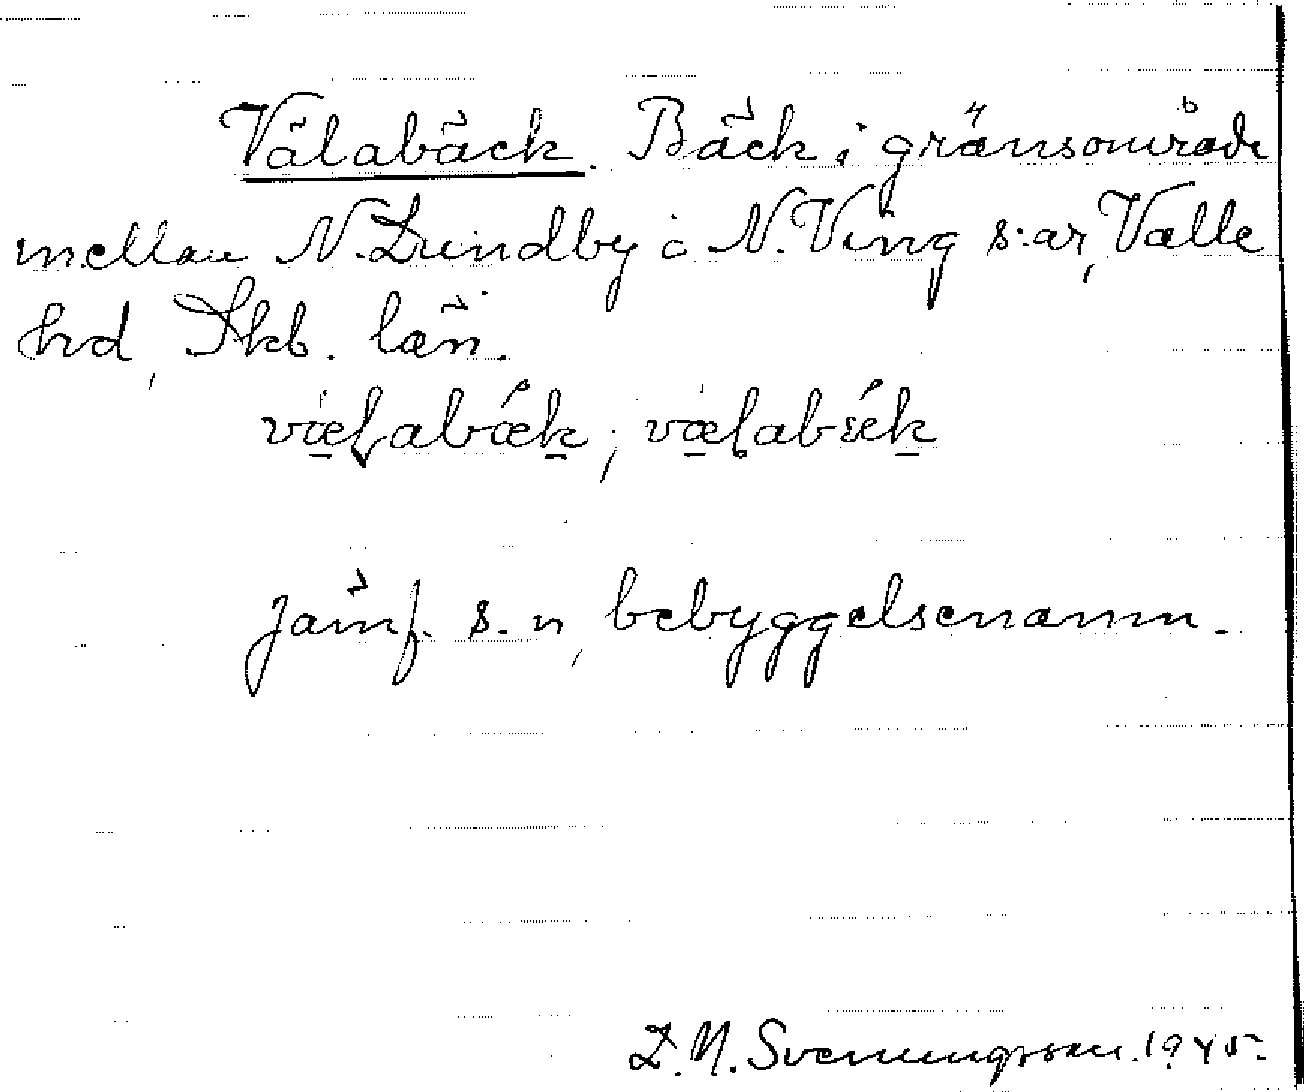 Välabäck. Bäck i gränsområde
mellan N. Lundby o N. Ving s:ar, Valle
hd, Skb. län.
væɭabǽk; væɭabǽk
Jämf. s. n, bebyggelsenamn.
Z. N. Svenungsson. 1945.